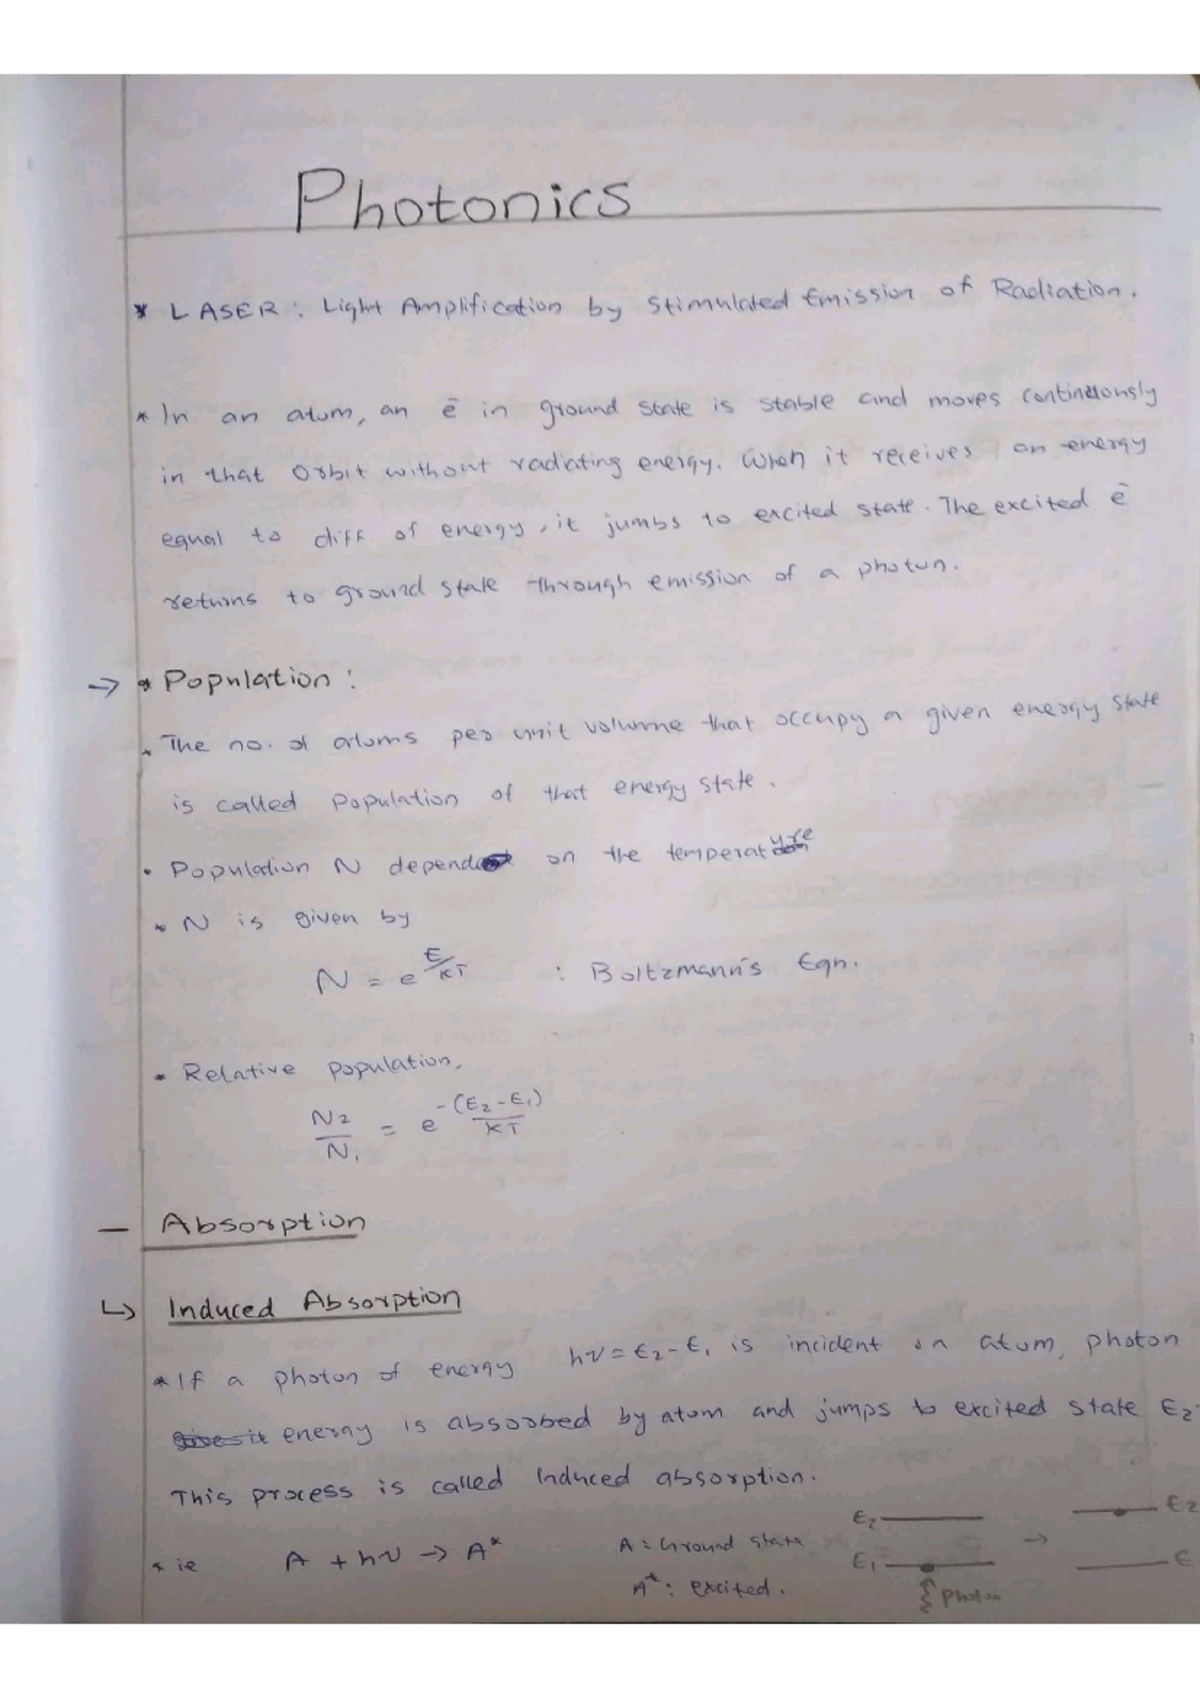 Photonics
* LASER : Light Amplification by Stimulated Emission of Radiation.
* In an atom, an ē in ground state is stable and moves continously
in that Orbit without radiating energy. When it receives an energy
equal to diff of energy, it jumbs to excited state. The excited ē
returns to ground state through emission of a photon.
→ * Population :
• The no. of atoms per unit volume that occupy a given energy state
is called Population of that energy state.
• Population N depend on the temperature
* N is given by
N = e^E/KT : Boltzmann's Eqn.
* Relative population,
N2/N1 = e^-(E2-E1)/KT
— Absorption
↳ Induced Absorption
* If a photon of energy hν = E2-E1 is incident on atom, photon
energy is absorbed by atom and jumps to excited state E2.
This process is called Induced absorption.
* ie A + hν → A* A : Ground state
A* : excited.
E2 → E2
E1 E
Photon